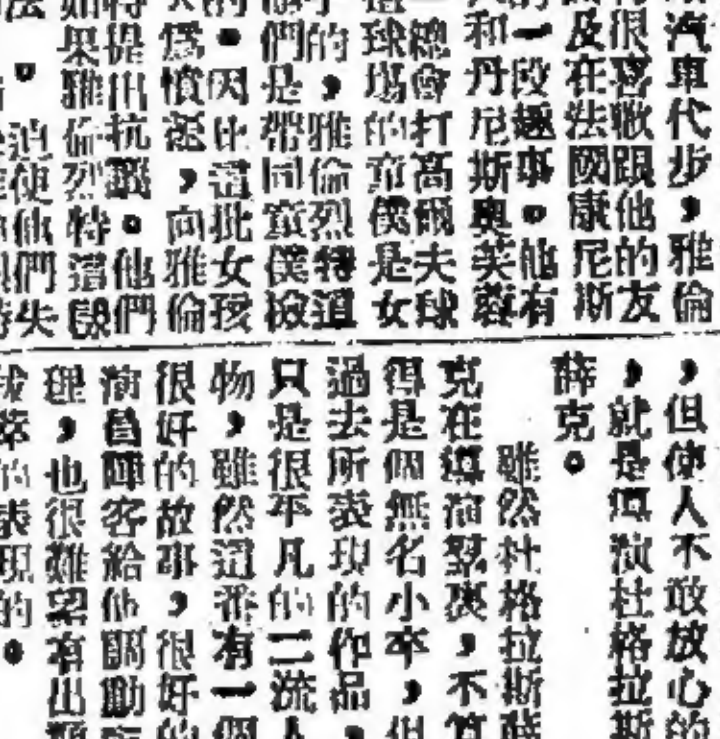 汽車代步，雅倫
很喜歡跟他的友
及在法國康尼斯
一段趣事。他有
和丹尼斯奧芙蓉
總會打高爾夫球
球場的童僕是女
的，雅倫烈特道
們是帶同童僕被
。因比這批女孩
爲憤怒，向雅倫
提出抗議。他們
果雅倫烈特這
迫使他們失
，但使人不敢放心的
，就是導演杜格拉斯
薛克。
雖然杜格拉斯薛
克在導演界裏，不算
得是個無名小卒，但
過去所表現的作品，
只是很平凡的二流人
物，雖然這番有一個
很好的故事，很好的
演員陣容給他調動
理，也很難望有出類
拔萃的表現的。